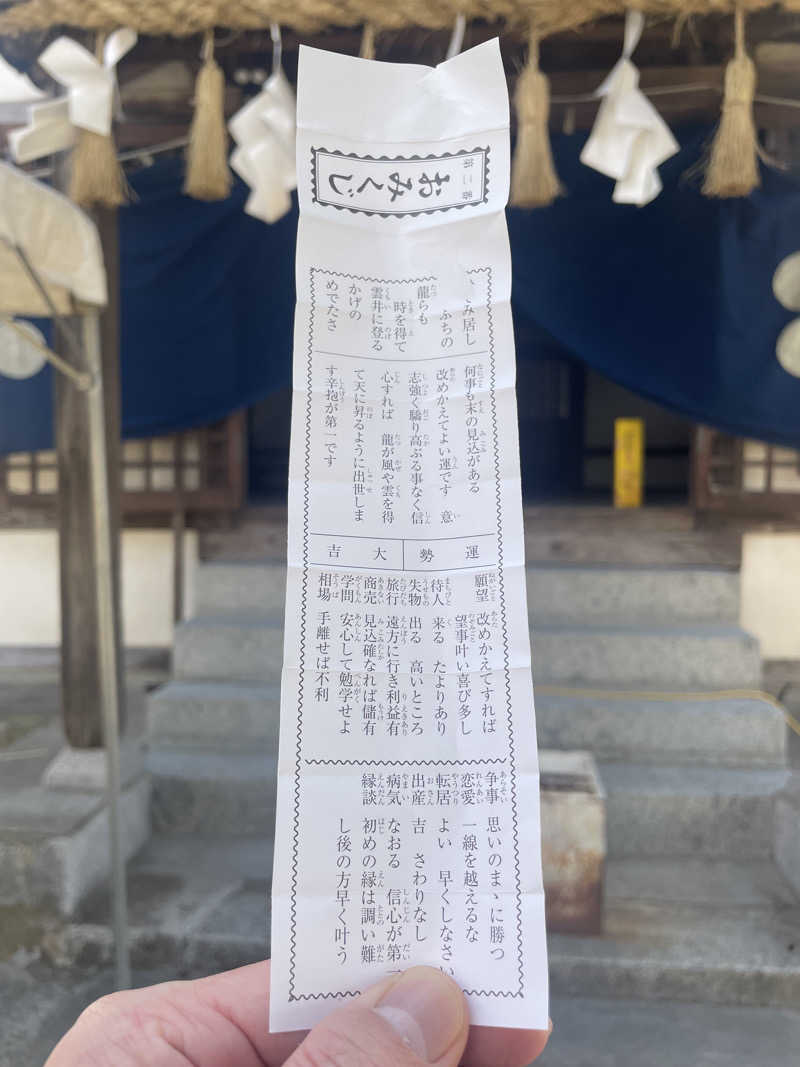 第二番
おみくじ
み居し
ふちの
龍らも
時を得て
雲井に登る
かげの
めでたさ
何事も末の見込がある
改めかえてよい運です 意
志強く驕り高ぶる事なく信
心すれば 龍が風や雲を得
て天に昇るように出世しま
す辛抱が第一です
運勢 大吉
願望 改めかえてすれば
望事叶い喜び多し
待人 来る たよりあり
失物 出る 高いところ
旅行 遠方に行き利益有
商売 見込確なれば儲有
学問 安心して勉学せよ
相場 手離せば不利
争事 思いのまゝに勝つ
恋愛 一線を越えるな
転居 よい 早くしなさい
出産 吉 さわりなし
病気 なおる 信心が第一
縁談 初めの縁は調い難
し後の方早く叶う